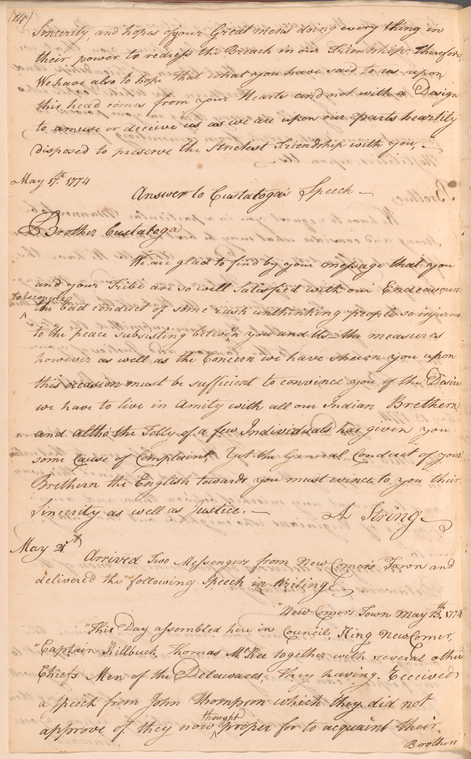 (14)
Sincerity, and hopes of your Great mens doing every thing in
their power to redress the Breach in our Friendship. Therefore
We have also to hope that what you have said to us upon
this head comes from your Hearts and not with a Design
to amuse or deceive us as we are upon our parts heartily
disposed to preserve the Strictest Friendship with you.
May 17th. 1774
Answer to Custatoga's Speech
Brother Custaloga
We are glad to find by your message that you
and your Tribe are so well Satisfied with our Endeavours
to reconcile
the bad conduct of some rash unthinking people so injurous
to the peace subsisting between you and us the measures
however as well as the Concern we have shewn you upon
this occasion must be sufficient to convince you of the Desire
we have to live in Amity with all our Indian Brethern
and altho the Folly of a few Individuals has given you
some Cause of Complaint, Yet the General Conduct of your
Brethern the English towards you must evince to you their
Sincerity as well as Justice.
A String
May 21st Arrived Two Messengers from New Comers Town and
delivered the following Speech in Writing
"New Comers Town May 13th. 1774
"This Day assembled here in Council, King NewComer,
"Captain Killbuck, Thomas McKee together with several other
Chiefs Men of the Delawares, They having Received
a speech from John Thompson which they did not
approve of they now thought proper for to acquaint their
Brothers